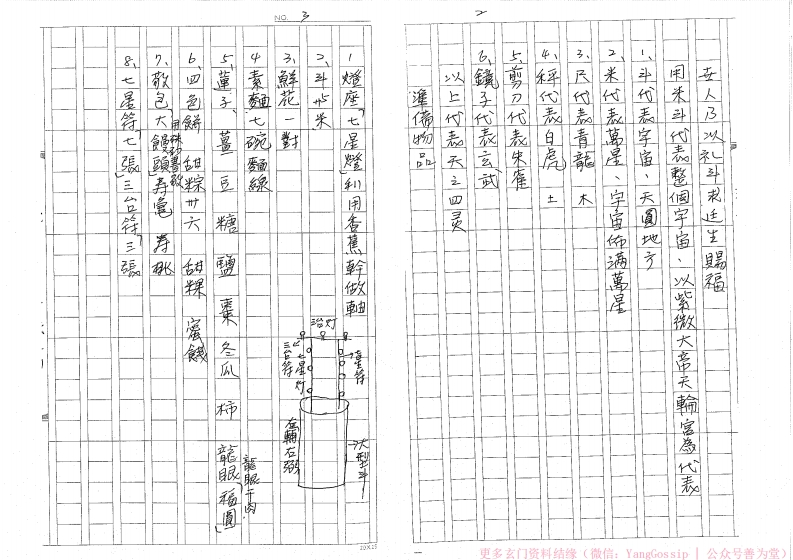 2
世人乃以礼斗求延生賜福
用米斗代表整個宇宙、以紫微大帝天輪宮為代表
1、斗代表宇宙、天圓地方
2、米代表萬星、宇宙佈滿萬星
3、尺代表青龍 木
4、秤代表白虎 土
5、剪刀代表朱雀
6、鏡子代表玄武
以上代表天之四灵
準備物品
NO. 3
1 燈座「七星燈」利用香蕉幹做軸
2、斗 米
3、鮮花一對
4 素麵七碗麵線
5、蓮子、薑 豆 糖 鹽 棗 冬瓜 柿 龍眼「福圓」
龍眼干肉
6、四色餅 甜粽廿六 甜粿 蜜餞
7、敬包「大饅頭」寿龜 寿桃
8、七星符「七張」三台符「三」張
三台灯
三台符
七星灯
星符
左輔右弼
大型斗
20X25
更多玄门资料结缘（微信：YangGossip | 公众号善为堂）